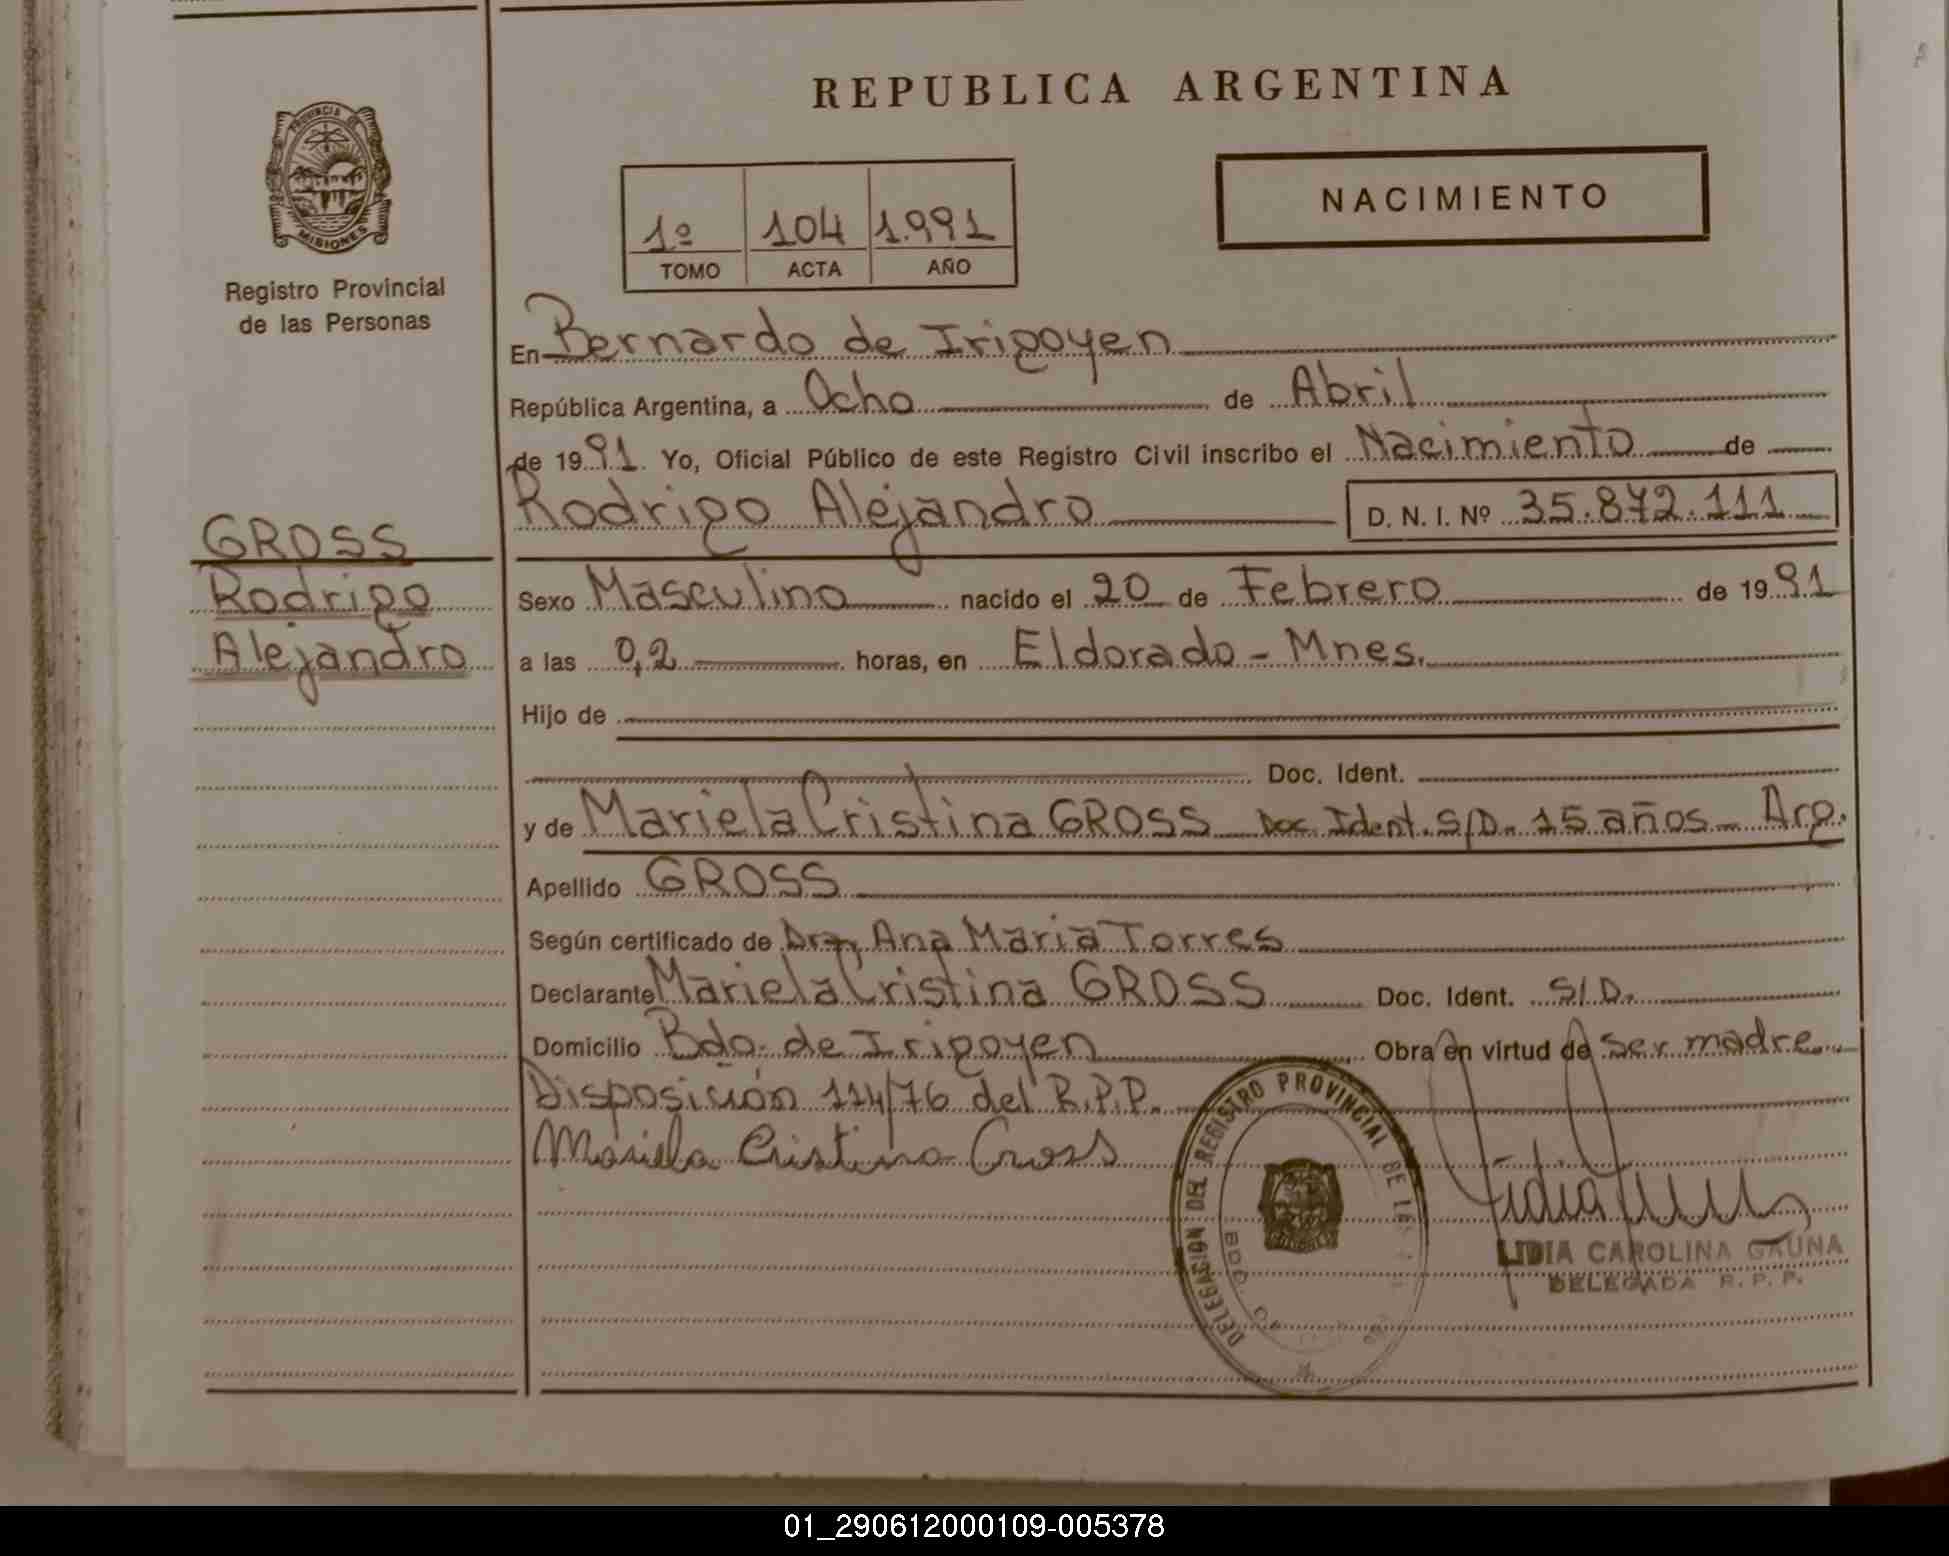 REPUBLICA ARGENTINA
PROVINCIA DE
MISIONES
Registro Provincial
de las Personas
NACIMIENTO
1º 104 1.991
TOMO ACTA AÑO
En Bernardo de Irigoyen
República Argentina, a Ocho de Abril
de 1991. Yo, Oficial Público de este Registro Civil inscribo el Nacimiento de
Rodrigo Alejandro D. N. I. Nº 35.872.111
GROSS
Rodrigo
Alejandro
Sexo Masculino nacido el 20 de Febrero de 1991
a las 0,2 horas, en Eldorado - Mnes.
Hijo de
Doc. Ident.
y de Mariela Cristina GROSS Doc. Ident. S/D. 15 años - Arg.
Apellido GROSS
Según certificado de Dra. Ana Maria Torres
Declarante Mariela Cristina GROSS Doc. Ident. S/D.
Domicilio Bdo. de Irigoyen Obra en virtud de ser madre.
Disposición 114/76 del R.P.P.
Mariela Cristina Gross
DELEGASION DEL REGISTRO PROVINCIAL DE
BDO. DE
LIDIA CAROLINA GAUNA
DELEGADA R. P. P.
01_290612000109-005378